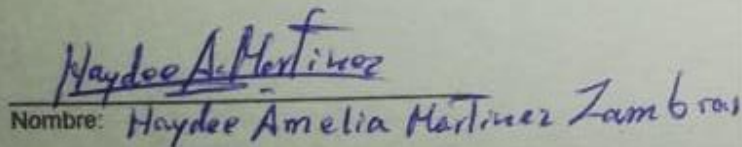 Haydee A. Martinez
Nombre: Haydee Amelia Martinez Zambrano